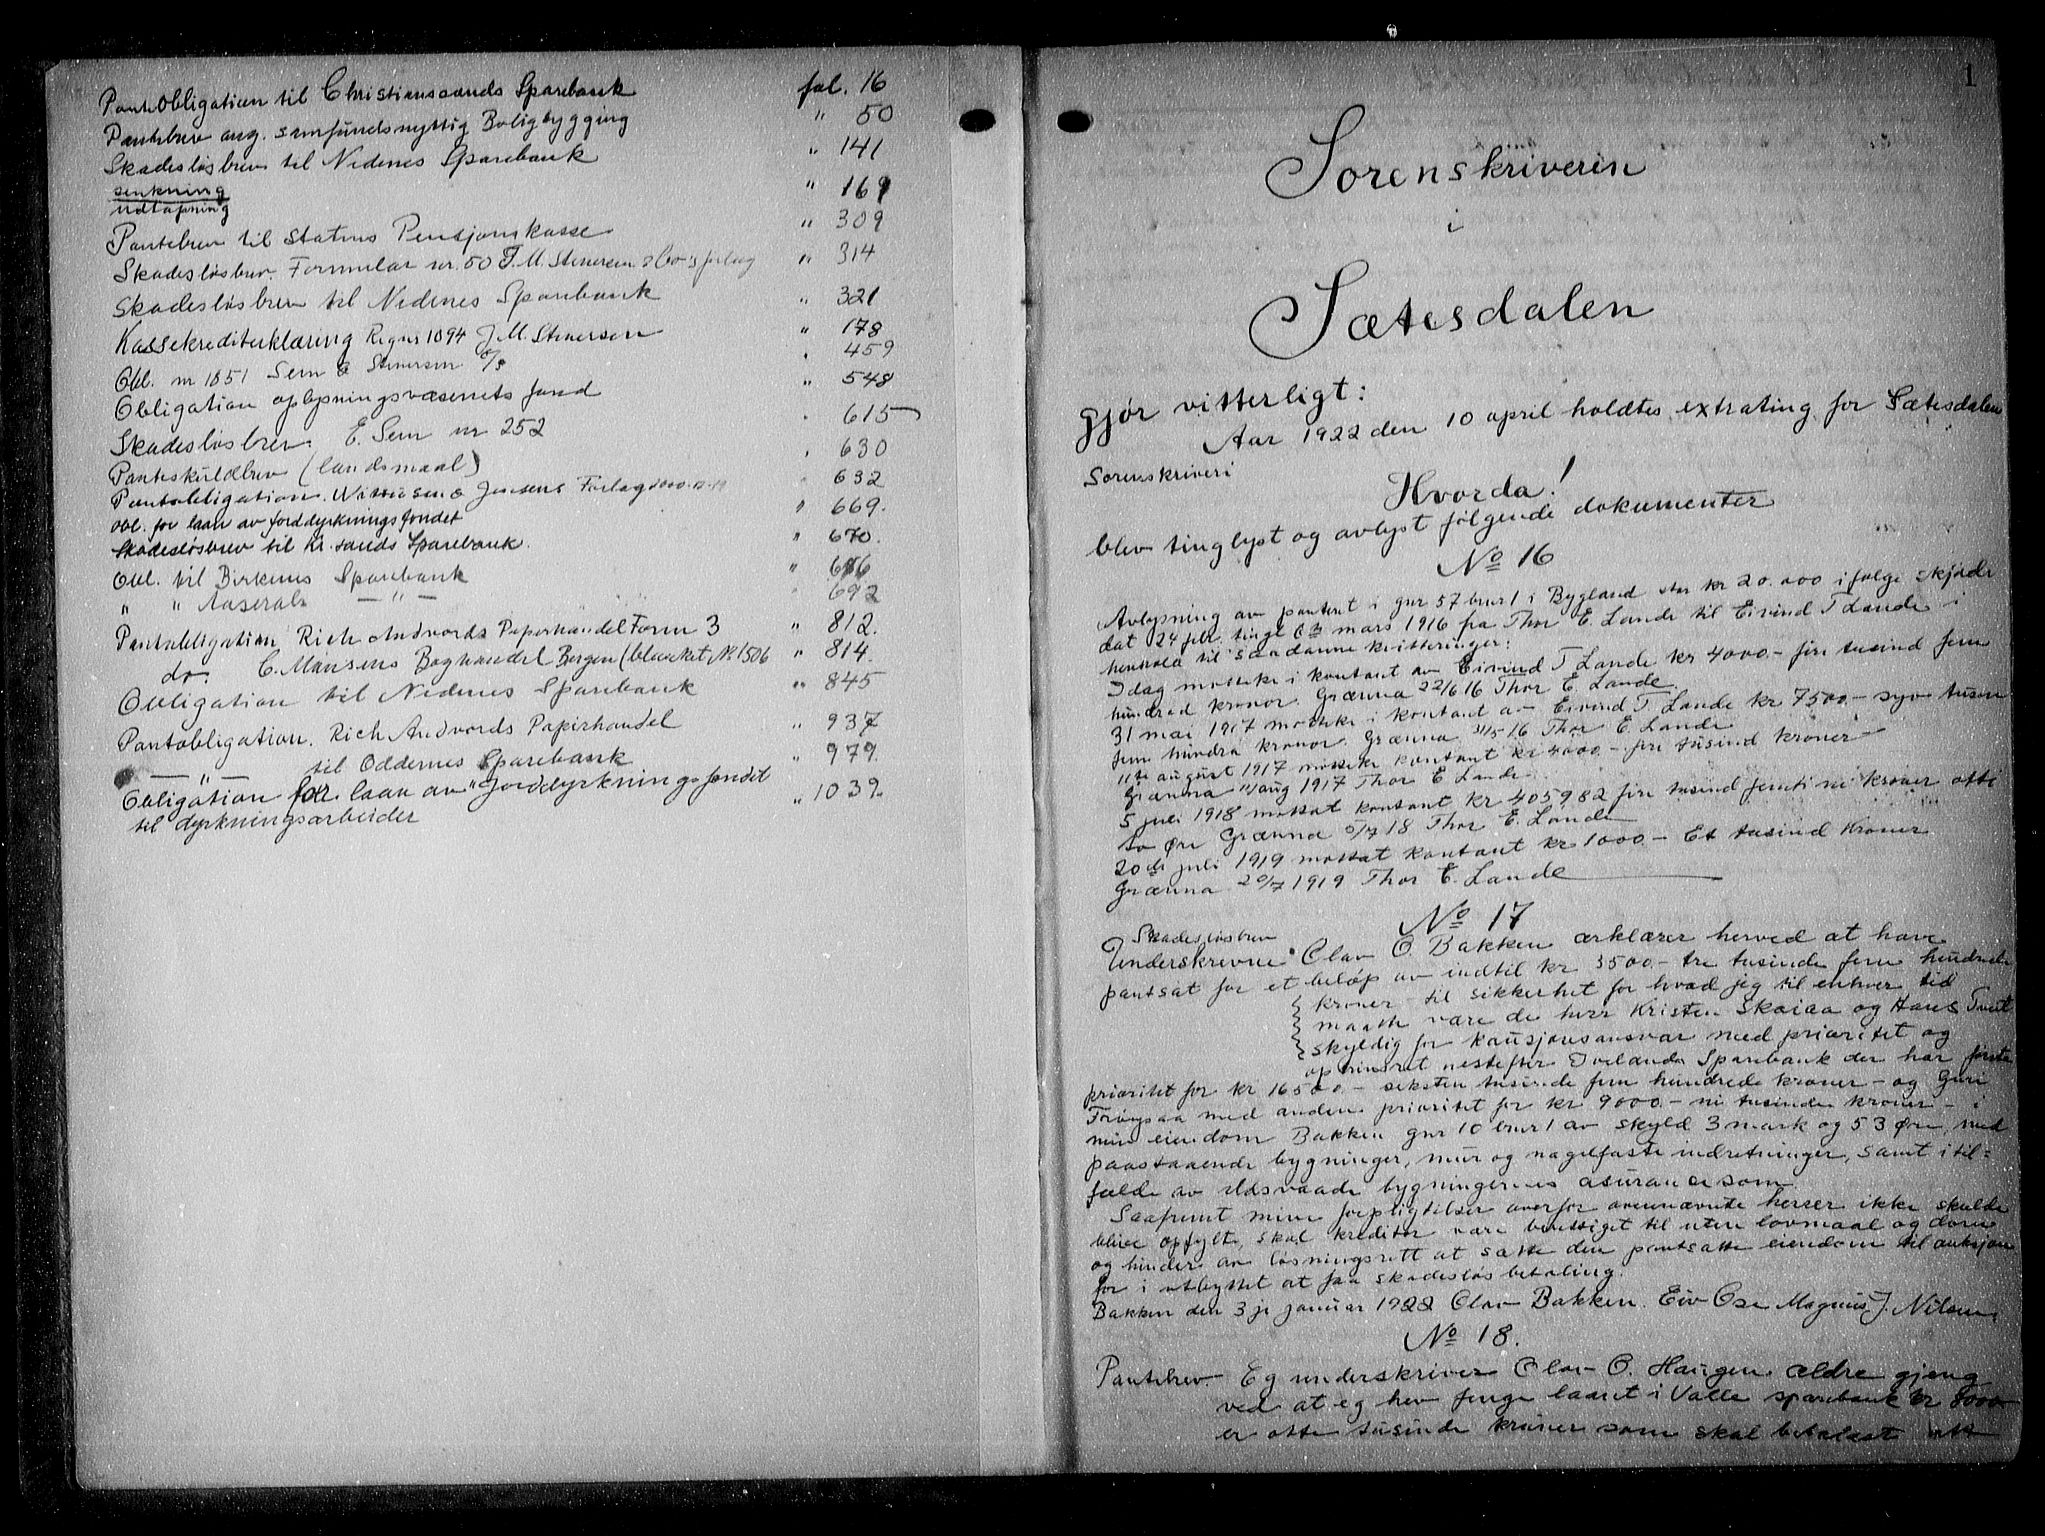 PanteObligation til Christianssands Sparebank fol. 16
Pantebrev ang. samfundsnyttig Boligbygging " 50
Skadesløsbrev til Nedenes Sparebank " 141
senkning " 169
udtapning
Pantebrev til Statens Pensjonskasse " 309
Skadesløsbrev. Formular nr. 50 J. M. Stenersen & Co's forlag " 314
Skadesløsbrev til Nedenes Sparebank " 321
Kassekrediterklæring Regnr 1094 J. M. Stenersen " 178
Obl. nr 1851 Sem & Stenersen A/S " 459
Obligation oplysningsvæsenets fond " 548
Skadesløsbrev E. Sem nr 252 " 615
Panteskuldbrev (landsmaal) " 630
Pantobligation. Wittusen & Jensens Forlag " 632
Obl. for laan av Jorddyrkningsfondet " 669.
Skadesløsbrev til Kr.sands Sparebank. " 670.
Obl. til Birkenes Sparebank " 686
" " Aaserals — " — " 692
Pantobligation Rich Andvords Papirhandel Form 3 " 812.
do. C. Mansens Boghandel Bergen (blanket No 1506 " 814.
Obligation til Nedenes Sparebank " 845
Pantobligation. Rich Andvords Papirhandel " 937
— " — til Oddernes Sparebank " 979.
Obligation for laan av "Jorddyrkningsfondet " 1039.
til dyrkningsarbeider
1
Sorenskriveren
i
Sætesdalen
gjør vitterligt:
Aar 1922 den 10 april holdtes extrating for Sætesdalens
Sorenskriveri
Hvorda!
blev tinglyst og avlyst følgende dokumenter
No 16
Avlysning av panteret i gnr 57 bnr 1 i Bygland stor kr 20.000 ifølge skjøde
dat 24 febr. tingl 6te mars 1916 fra Thor E. Lande til Eivind T Lande i
henhold til saadanne kvitteringer:
Idag mottekic kontant av Eivind T Lande kr 4000.- fire tusind fem
hundred kroner. Grænna 22/6 16 Thor E. Lande.
31 mai 1917 mottekic kontant av Eivind T. Lande kr 7500.- syv tusen
fem hundra kroner. Grænna 31/5 16 Thor E. Lande
11te august 1917 mottekic kontant kr 4000.- fire tusind kroner
Grænna 11/aug 1917 Thor E. Lande.
5 juli 1918 mottat kontant kr 4059 82 fire tusind femti ni kroner otti
to øre Grænna 5/7 18 Thor E. Lande
20de juli 1919 mottat kontant kr 1000.- Et tusind Kroner
Grænna 20/7 1919 Thor E. Lande
No 17
Skadesløsbrev
Underskrevne Olav O. Bakken erklærer herved at have
pantsat for et beløp av indtil kr 3500.- tre tusinde fem hundrede
kroner - til sikkerhet for hvad jeg til enhver tid
maatte være de herr Kristen Skaiaa og Hans Tveit
skyldig for kausjonsansvar med prioritet og
opinnret nestefter Ivelands Sparebank der har første
prioritet for kr 16500 - seksten tusinde fem hundrede kroner - og Guri
Frøysaa med anden prioritet for kr 9000.- ni tusinde kroner - i
min eiendom Bakken gnr 10 bnr 1 av skyld 3 mark og 53 øre, med
paastaaende bygninger, mur og nagelfaste indretninger, samt i til=
fælde av ildsvaade bygningernes asuransesom
Saafremt mine forpligtelser overfor ovennævnte herrer ikke skulde
blive opfylte, skal kreditor være berettiget til uten lovmaal og dom
og hinder av løsningsrett at sætte den pantsatte eiendom til auksjon
for i utbyttet at faa skadesløs betaling.
Bakken den 3je januar 1922 Olav Bakken. Eiv Ose Magnus J. Nilsen.
No 18.
Pantebrev. Eg underskriver Olav O. Haugen ældre gjeng
ved at eg hev fenge laant i Valle sparebank kr 8000
er otte tusinde kroner som skal betalast